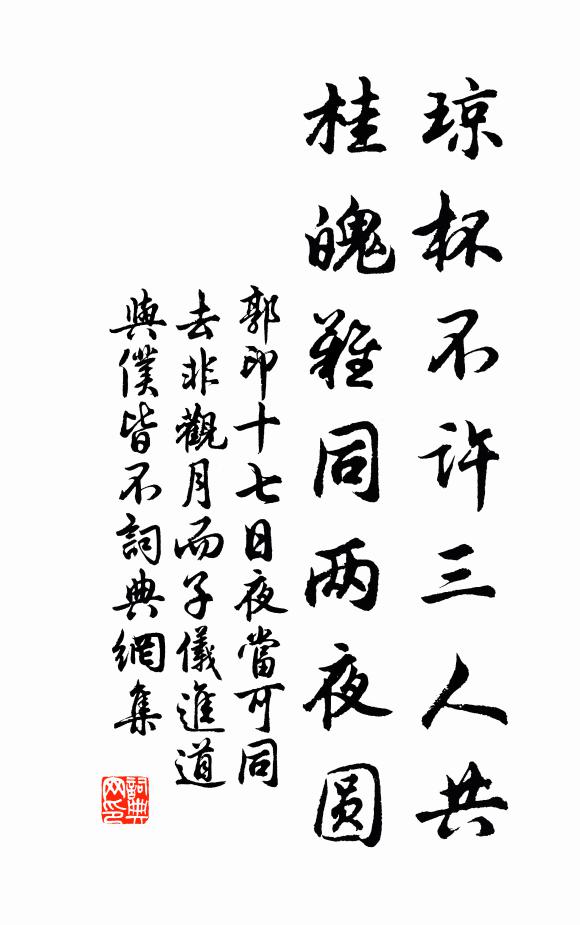 琼杯不许三人共
桂魄難同两夜圆
郭印十七日夜當可同
去非觀月而子儀進道
與僕皆不詞典網集
詞典
网印